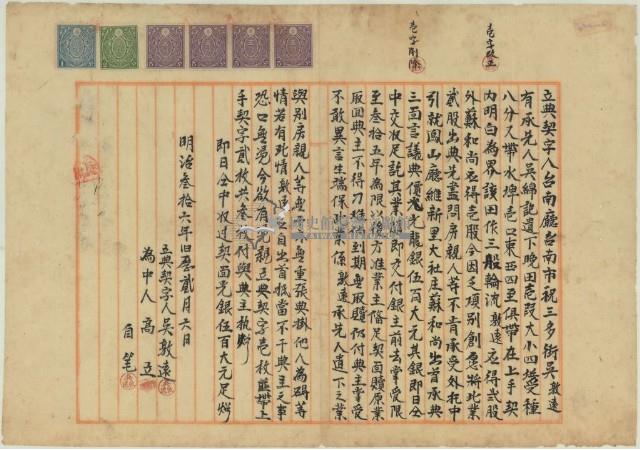 壱字改正
壱字刪除
立典契字人台南廳台南市祝三多街吳敦遠
有承先人吳綿記遺下晚田壱段大小四坵受種
八分又帶水埤壱口東西四至俱帶在上手契
內明白為界該田作三股輪流敦遠應得貳股
外蘇和尚應得壱股今因乏項別創愿將此業
貳股出典先盡問房親人等不肯承受外托中
引就鳳山廳維新里大社庄蘇和尚出首承典
三面言議典價光龍銀伍百大元其銀即日仝
中交收足訖其業隨即交付銀主前去掌管受限
至叁拾五年為限以方准業主備足契面贖原業
取回典主不得刁難到期無取贖仍付典主掌受
不敢異言生端保此業係敦遠承先人遺下之業
與別房親人等無干亦無重張典掛他人為碍等
情若有此情敦遠自出首抵當不干典主之事
恐口無憑今欲有光親立典契字壱枚並帶上
手契字貳枚共叁枚付與典主執炤
即日仝中收过契面光銀伍百大元足炤
明治叁拾六年旧貳月六日
立典契字人吳敦遠
為中人 高立
自筆